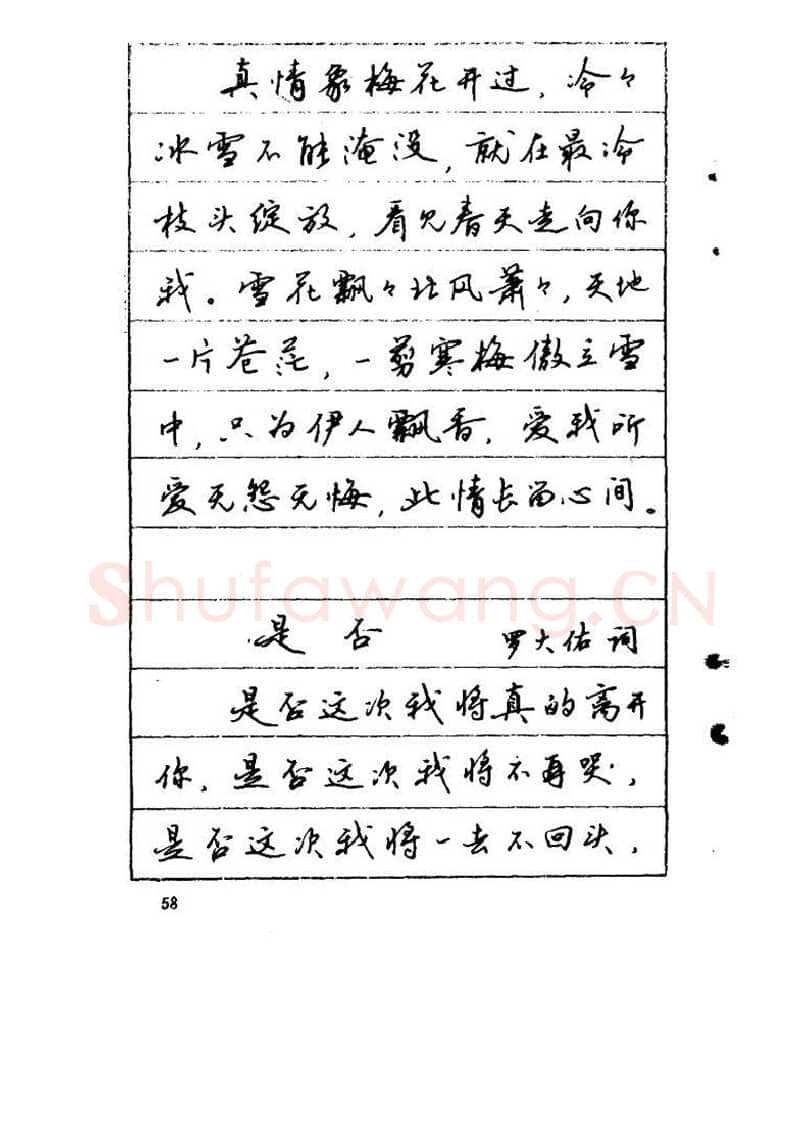 真情象梅花开过，冷々
冰雪不能淹没，就在最冷
枝头绽放，看见春天走向你
我。雪花飘々北风萧々，天地
一片苍茫，一剪寒梅傲立雪
中，只为伊人飘香，爱我所
爱无怨无悔，此情长留心间。
Shufawang.CN
是否 罗大佑词
是否这次我将真的离开
你，是否这次我将不再哭，
是否这次我将一去不回头，
58